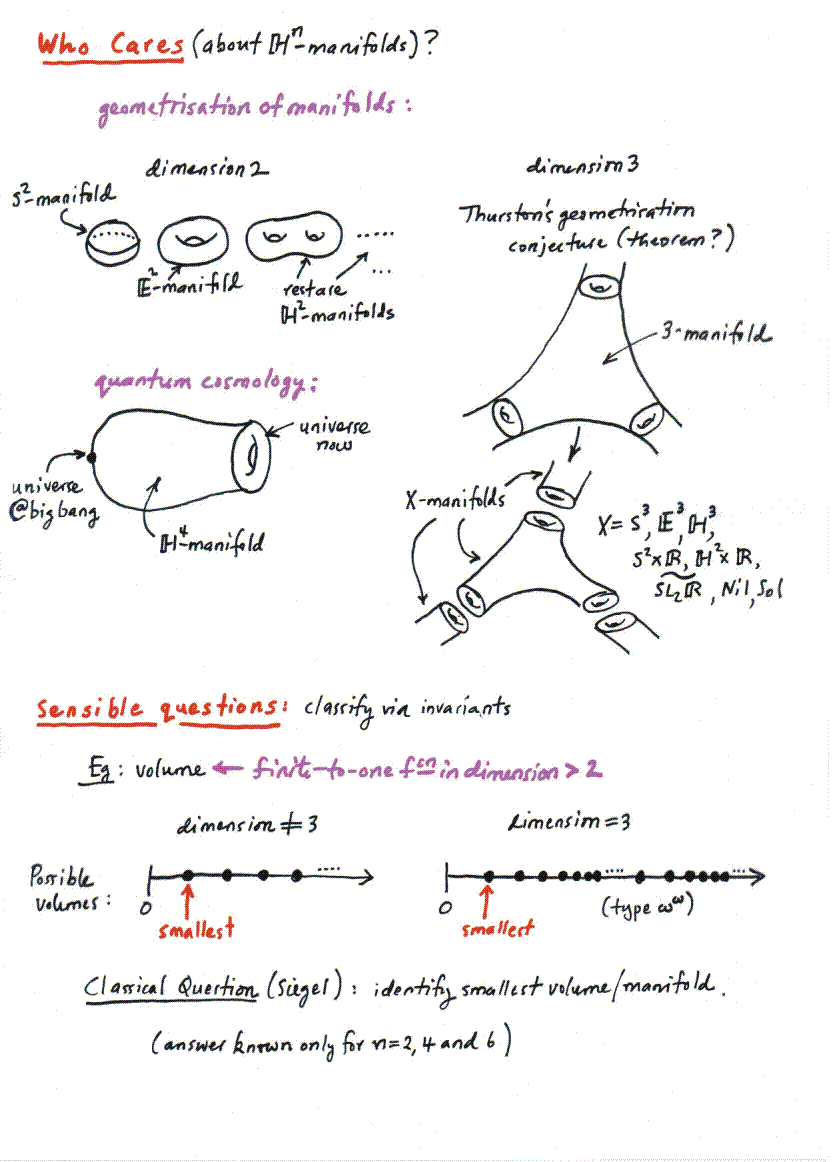 Who Cares (about ℍⁿ-manifolds)?
geometrisation of manifolds:
dimension 2
S²-manifold
𝔼²-manifold
rest are
ℍ²-manifolds
dimension 3
Thurston's geometrisation
conjecture (theorem?)
3-manifold
quantum cosmology:
universe
now
universe
@ big bang
ℍ⁴-manifold
X-manifolds
X = S³, 𝔼³, ℍ³,
S²×ℝ, ℍ²×ℝ,
S͠L₂ℝ, Nil, Sol
Sensible questions: classify via invariants
Eg: volume ← finite-to-one fcn in dimension > 2
dimension ≠ 3
dimension = 3
Possible
volumes:
0
smallest
0
smallest
(type ω^ω)
Classical Question (Siegel): identify smallest volume/manifold.
(answer known only for n=2, 4 and 6)